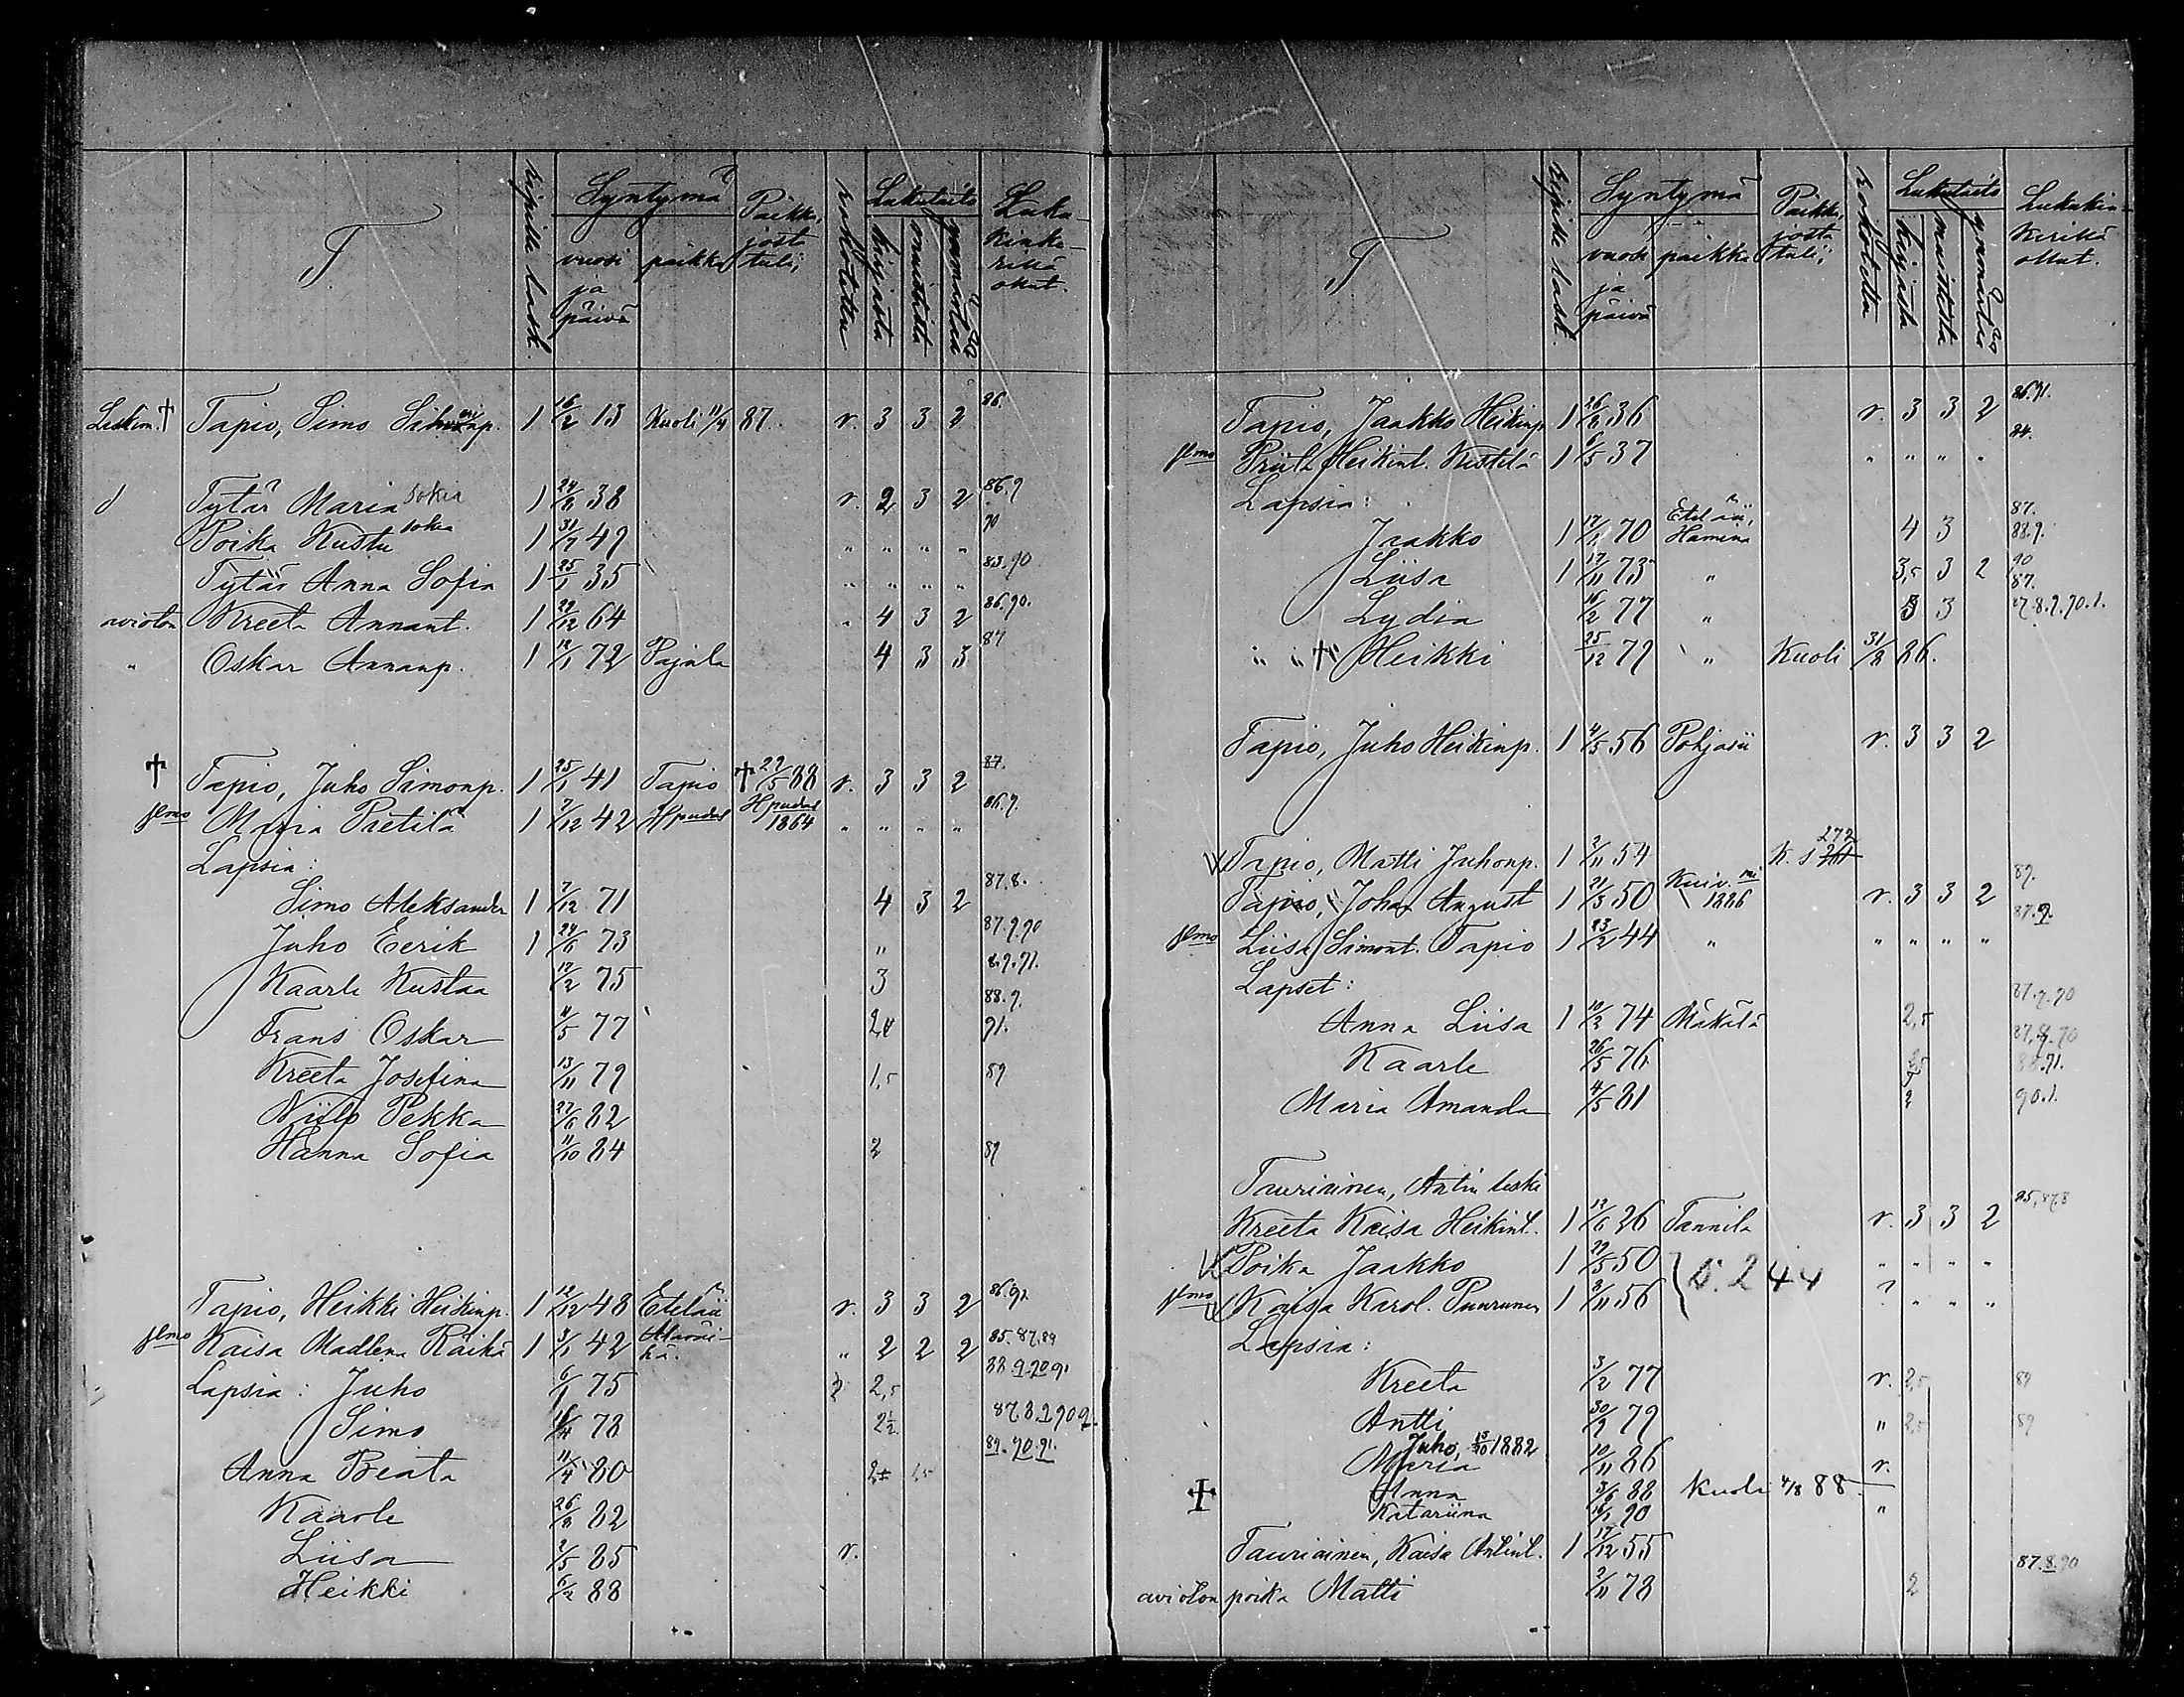 T
ripille lask.
Syntymä
vuosi ja päivä
paikka
Paikka, josta tuli;
rokotettu
Lukutaito
kirjasta
muistista
ymmärtää
Lukukinkerillä ollut.
Leskim. † Tapio, Simo Simonp. 1 16/2 13 Kuoli 11/4 87. r. 3 3 2 86.
Tytär Maria sokea 1 24/8 38 r. 2 3 2 86.9
Poika Kustu sokea 1 31/7 49 " " " " 90
Tytär Anna Sofia 1 25/1 35 " " " " 83.90
avioton Kreeta Annant. 1 29/12 64 " 4 3 2 86.90.
" Oskar Annanp. 1 12/1 72 Pajula 4 3 3 87
† Tapio, Juho Simonp. 1 25/1 41 Tapio † 29/5 88 r. 3 3 2 87.
Maria Pretilä 1 7/12 42 Hpudas Hpudas 1864 " " " " 86.9.
Lapsia:
Simo Aleksander 1 7/12 71 4 3 2 87.8.
Juho Eerik 1 24/6 73 " 87.9.90
Kaarle Kustaa 17/2 75 3 8.9.91.
Frans Oskar 11/5 77 88.9. 91.
Kreeta Josefina 13/11 79 1,5 89
Niilo Pekka 27/6 82
Hanna Sofia 11/10 84 2 89
Tapio, Heikki Heikinp. 1 12/12 48 Eteläii r. 3 3 2 86.91
Kaisa Madlena Räikä 1 3/1 42 " 2 2 2 85.87.89
Lapsia: Juho 6/1 75 2,5 88 9.90 91
Simo 16/4 78 2½ 87.8.9 90 9.
Anna Preata 11/4 80 89.90.91.
Kaarle 26/8 82
Liisa 2/5 85 r.
Heikki 6/2 88
T
ripille lask.
Syntymä
vuosi ja päivä
paikka
Paikka, josta tuli;
rokotettu
Lukutaito
kirjasta
muistista
ymmärtää
Lukukinkerillä ollut.
Tapio, Jaakko Heikinp. 1 26/8 36 r. 3 3 2 86.91.
Priita Heikint. Kestilä 1 6/5 37 " " " " 84.
Lapsia:
Jaakko 1 17/1 70 Eteläii, Hamina 4 3 87. 88.9.
Liisa 1 17/11 73 " 3,5 3 2 90 87.
Lydia 16/2 77 " 3 3 7.8.9.90.1.
" " † Heikki 25/12 79 " Kuoli 31/8 86.
Tapio, Juho Heikinp. 1 4/5 56 Pohjasii r. 3 3 2
Tapio, Matti Juhonp. 1 2/11 54 K. S 272
Tapio, Johan August 1 21/3 50 Kuiv. 1886 r. 3 3 2 89.
Liisa Simont. Tapio 1 23/2 44 " " " " " 87.9.
Lapset:
Anna Liisa 1 10/2 74 Mäkelä 2,5 87.9.90
Kaarle 26/5 76 87.8.90 88.91.
Maria Amanda 4/5 81 2 90.1.
Tauriainen, Antin leski
Kreeta Kaisa Heikint. 1 12/6 26 Tannila r. 3 3 2 85,87.8
Poika Jaakko 1 29/5 50 " " " "
Kaisa Karol. Puurunen 1 2/11 56 S. 244 ? " " "
Lapsia:
Kreeta 3/2 77 r. 2,5 89
Antti 30/9 79 " 2,5 89
Juho, 15/10 1882
Maria 10/11 86 r.
† Anna 3/6 88 Kuoli 4/8 88
Katariina 16/1 90 "
Tauriainen, Kaisa Antint. 1 17/12 55
avioton poika Matti 2/11 78 2 87.8.90